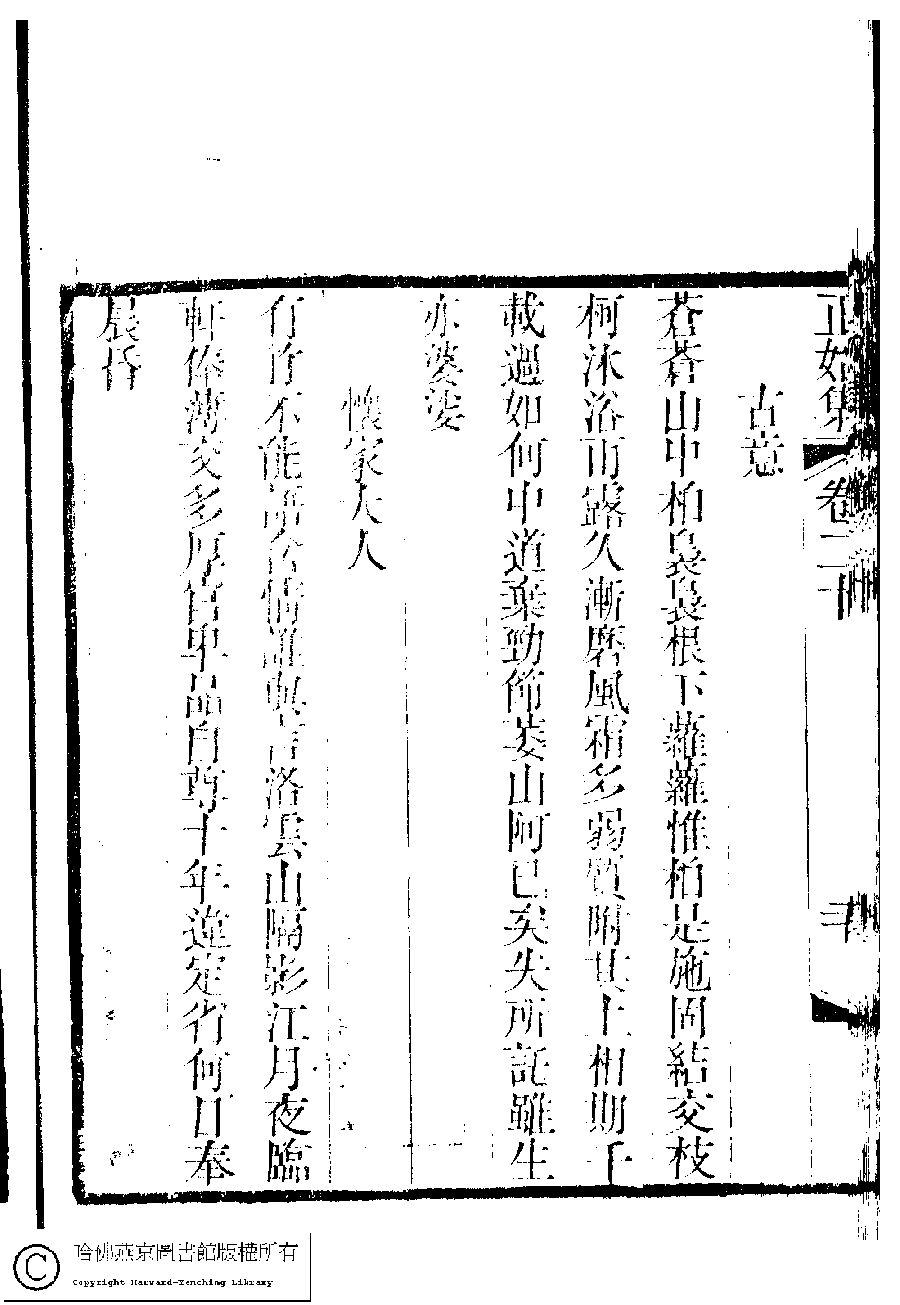 正始集 卷二十 三
古意
蒼蒼山中柏裊裊根下蘿蘿惟柏是施固結交枝
柯沐浴雨露久漸磨風霜多弱質附其上相期千
載過如何中道棄勁節萎山阿已矣失所託雖生
亦婆娑
懷家大人
行行不能語含情誰與言洛雲山隔影江月夜臨
軒俸薄交多厚官卑品自尊十年違定省何日奉
晨昏
哈佛燕京圖書館版權所有
Copyright Harvard-Yenching Library